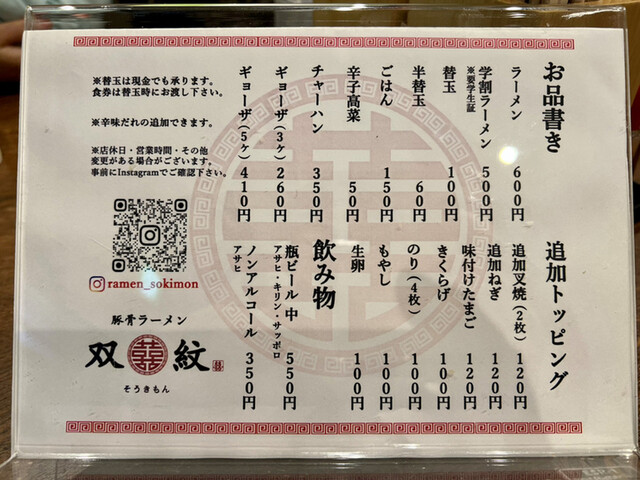 お品書き
ラーメン 600円
学割ラーメン 500円
※要学生証
替玉 100円
半替玉 60円
ごはん 150円
辛子高菜 50円
チャーハン 350円
ギョーザ(3ヶ) 260円
ギョーザ(5ヶ) 410円
追加トッピング
追加叉焼(2枚) 120円
追加ねぎ 120円
味付けたまご 120円
きくらげ 100円
のり(4枚) 100円
もやし 100円
生卵 100円
飲み物
瓶ビール 中 550円
アサヒ・キリン・サッポロ
ノンアルコール 350円
アサヒ
※替玉は現金でも承ります。
食券は替玉時にお渡し下さい。
※辛味だれの追加できます。
※店休日・営業時間・その他
変更がある場合がございます。
事前にInstagramでご確認下さい。
ramen_sokimon
豚骨ラーメン
双囍紋
そうきもん